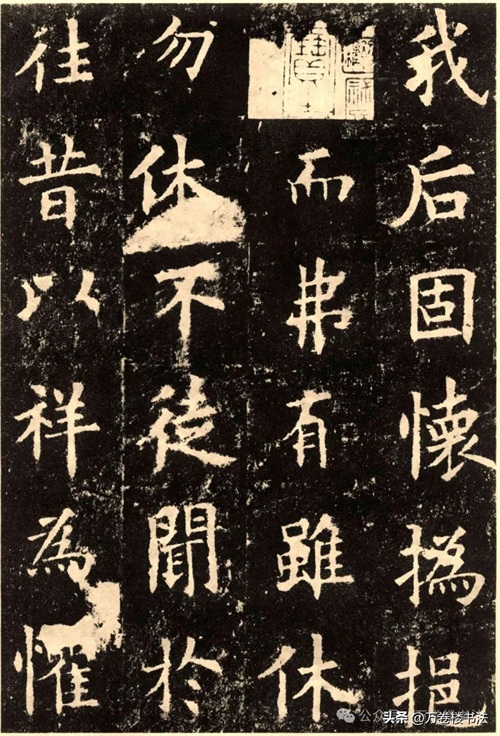 我后固懷撝挹
而弗有雖休
勿休不徒聞於
往昔以祥為懼
头条 @万卷楼书法